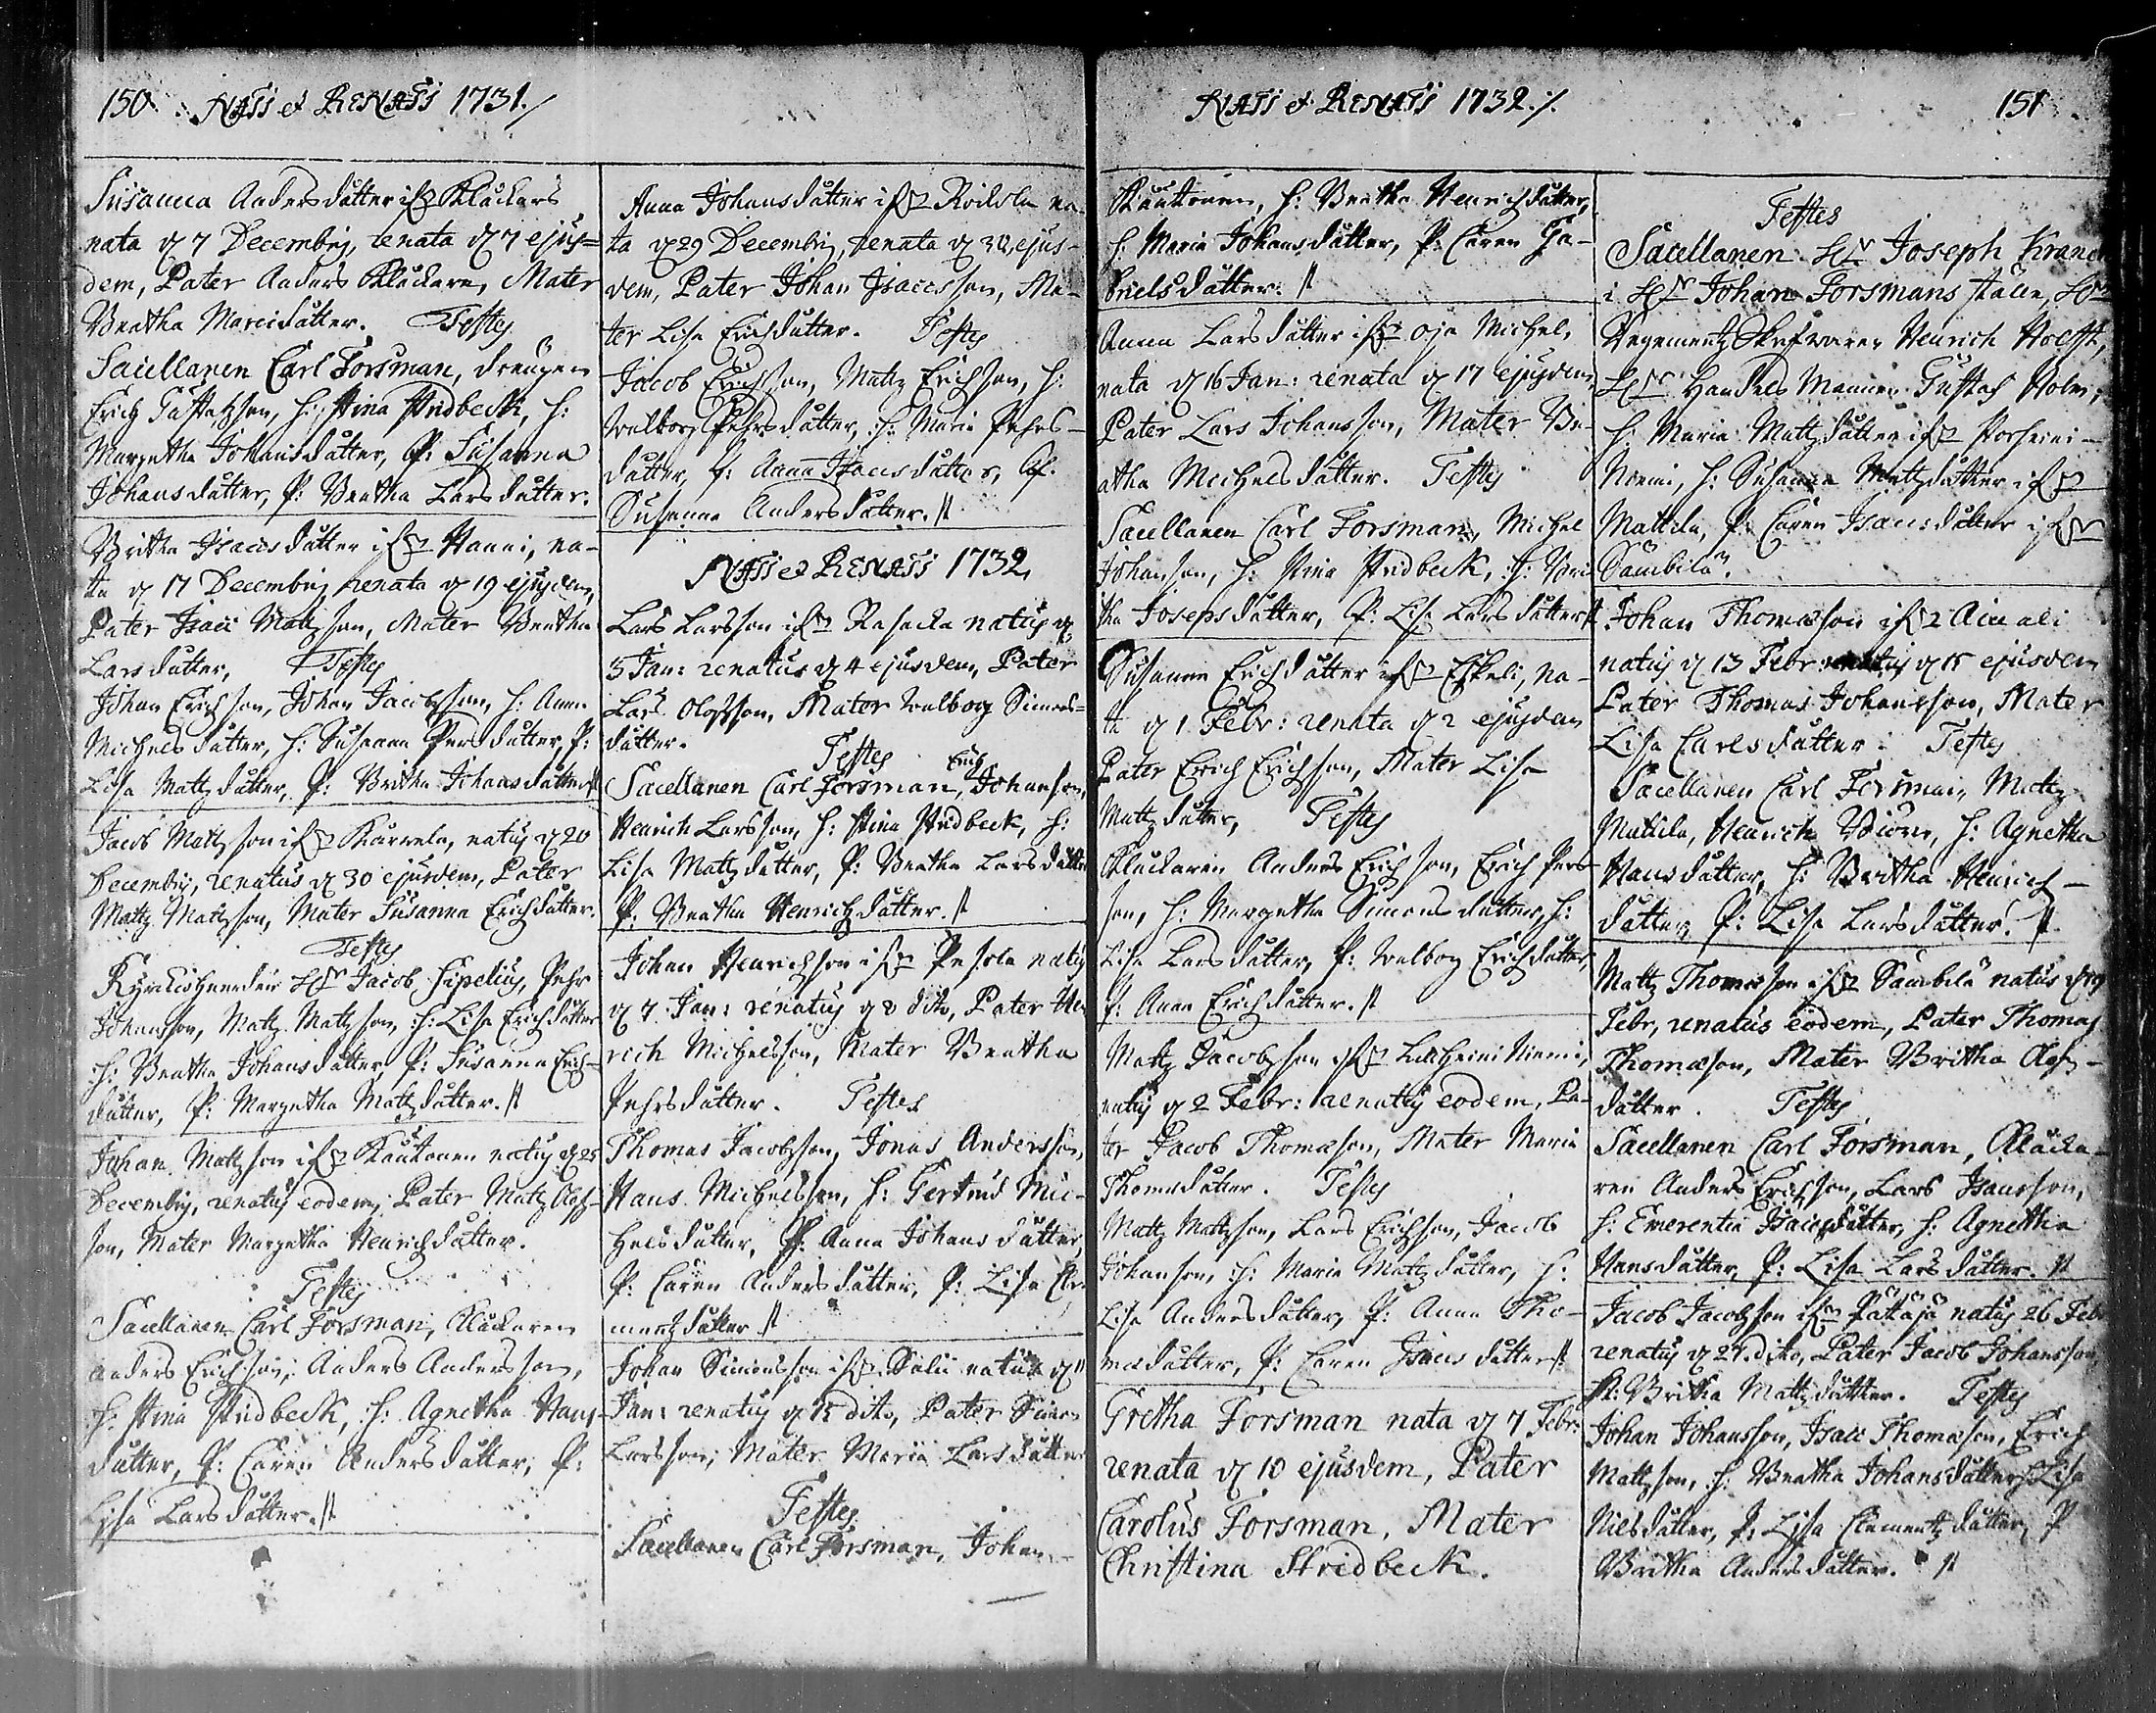 150 NATi et RENATi 1731./
Susanna Andersdåtter ifrån Klåckars
nata d 7 Decembris, renata d 7 ejus=
dem, Pater Anders Klåckare, Mater
Beatha Marcidåtter. Testes
Sacellanen Carl Forsman, drengen
Erich Gustafzson, h: Stina Stridbeck, h:
Margetha Johansdåtter, P: Susanna
Johansdåtter, P: Beatha Larsdåtter.
Britha Isacsdåtter ifrån Hanni, na-
ta d 17 Decembris renata d 19 ejusdem,
Pater Isac Mattzson, Mater Beatha
Larsdåtter, Testes
Johan Erichson, Johan Jacobsson, h: Anna
Michelsdåtter, h: Susanna Persdåtter, P:
Lisa Mattzdåtter, P: Britha Johansdåtter
Jacob Mattzson ifrån natus d 20
Decembris, renatus d 30 ejusdem, Pater
Mattz Mattzson, Mater Susanna Erichdåtter.
Testes
Kyrckioherden Hr Jacob Sipelius, Pehr
Johansson, Mattz Mattzson, h: Lisa Erichdåtter
h: Beatha Johansdåtter, P: Susanna Erich-
dåtter, P: Margetha Mattzdåtter.
Johan Mattzson ifrån Kautonen natus d 25
Decembris, renatus eodem, Pater Mattz Olofs-
son, Mater Margetha Henrichdåtter.
Testes
Sacellanen Carl Forsman, Klåckaren
Anders Erichson, Anders Andersson,
h: Stina Stridbeck, h: Agnetha Hans-
dåtter, P: Caren Andersdåtter, P:
Lisa Larsdåtter.
Anna Johansdåtter ifrån na-
ta d 29 Decembris, renata d 30 ejus-
dem, Pater Johan Isacsson, Ma-
ter Lisa Erichdåtter. Testes
Jacob Erichson, Mattz Erichson, h:
Walborg Pehrsdåtter, h: Maria Pehrs-
dåtter, P: Anna Isacsdåtter, P:
Susanna Andersdåtter.
NATi et RENATi 1732,
Lars Larsson ifrån natus d
3 Jan: renatus d 4 ejusdem, Pater
Lars Olofsson, Mater Walborg Simons=
dåtter. Testes
Sacellanen Carl Forsman, Erich Johanson,
Henrich Larsson, h: Stina Stridbeck, h:
Lisa Mattzdåtter, P: Beatha Larsdåtter
P: Beatha Henrichdåtter.
Johan Henrichson ifrån natus
d 7 Jan: renatus d 8 dito, Pater Hen
rich Michelsson, Mater Beatha
Pehrsdåtter. Testes
Thomas Jacobsson, Jonas Andersson,
Hans Michelsson, h: Gertrud Mic-
helsdåtter, P: Anna Johansdåtter,
P: Caren Andersdåtter, P: Lisa Cle-
mentzdåtter
Johan Simonsson ifrån natus d 11
Jan: renatus d 15 dito, Pater Simon
Larsson, Mater Maria Larsdåtter
Testes
Sacellanen Carl Forsman, Johan
NATi et RENATi 1732./. 151
Kautonen, h: Beatha Henrichdåtter,
h: Maria Johansdåtter, P: Caren Ga-
brielsdåtter.
Anna Larsdåtter ifrån Oja Michel,
nata d 16 Jan: renata d 17 ejusdem
Pater Lars Johansson, Mater Be-
atha Michelsdåtter. Testes
Sacellanen Carl Forsman, Michel
Johanson, h: Stina Stridbeck, h: Bri
tha Josepsdåtter, P: Lisa Larsdåtter
Susanna Erichdåtter ifrån Eskeli, na-
ta d 1 Febr: renata d 2 ejusdem
Pater Erich Erichson, Mater Lisa
Mattzdåtter, Testes
Klåckaren Anders Erichson, Erich Pers
son, h: Margetha Simonsdåtter, h:
Lisa Larsdåtter, P: Walborg Erichdåtter,
P: Anna Erichdåtter.
Mattz Jacobsson ifrån Niemi,
natus d 2 Febr: renatus eodem, Pa-
ter Jacob Thomæson, Mater Maria
Thomædåtter. Testes
Mattz Mattzson, Lars Erichson, Jacob
Johanson, h: Maria Mattzdåtter, h:
Lisa Andersdåtter, P: Anna Tho-
mædåtter, P: Caren Isacsdåtter
Gretha Forsman nata d 7 Febr:
renata d 10 ejusdem, Pater
Carolus Forsman, Mater
Christina Stridbeck.
Testes
Sacellanen Hr Joseph
i Hr Johan Forsmans ställe, Hr
Regementz Skrifvaren Henrich
Hr Handels Mannen Gustaf Holm,
h: Maria Mattzdåtter ifrån
Niemi, h: Susanna Mattzdåtter ifrån
Mattila, P: Caren Isacsdåtter ifrån
Sambila.
Johan Thomæson ifrån
natus d 13 Febr: renatus d 15 ejusdem
Pater Thomas Johansson, Mater
Lisa Carlsdåtter. Testes
Sacellanen Carl Forsman, Mattz
Mattila, Henrich h: Agnetha
Hansdåtter, h: Britha Henrich-
dåtter, P: Lisa Larsdåtter.
Mattz Thomæson ifrån Sambila natus d 19
Febr, renatus eodem, Pater Thomas
Thomæson, Mater Britha Olofs-
dåtter. Testes
Sacellanen Carl Forsman, Klåcka-
ren Anders Erichson, Lars Isacsson,
h: Emerentia Isacsdåtter, h: Agnetha
Hansdåtter, P: Lisa Larsdåtter.
Jacob Jacobsson ifrån Pättäjä natus 26 Feb
renatus d 27. dito, Pater Jacob Johansson
M: Britha Mattzdåtter. Testes
Johan Johansson, Isac Thomæson, Erich
Mattzson, h: Beatha Johansdåtter, h: Lisa
Nilsdåtter, P: Lisa Clementzdåtter, P
Britha Andersdåtter.